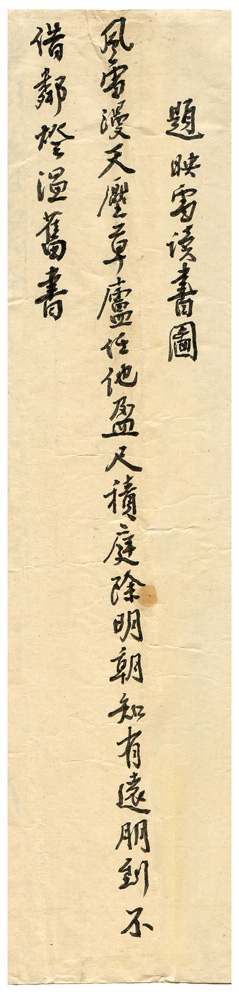 題映雪讀書圖
風雪漫天壓草廬任他盈尺積庭除明朝知有遠朋到不
借鄰燈溫舊書